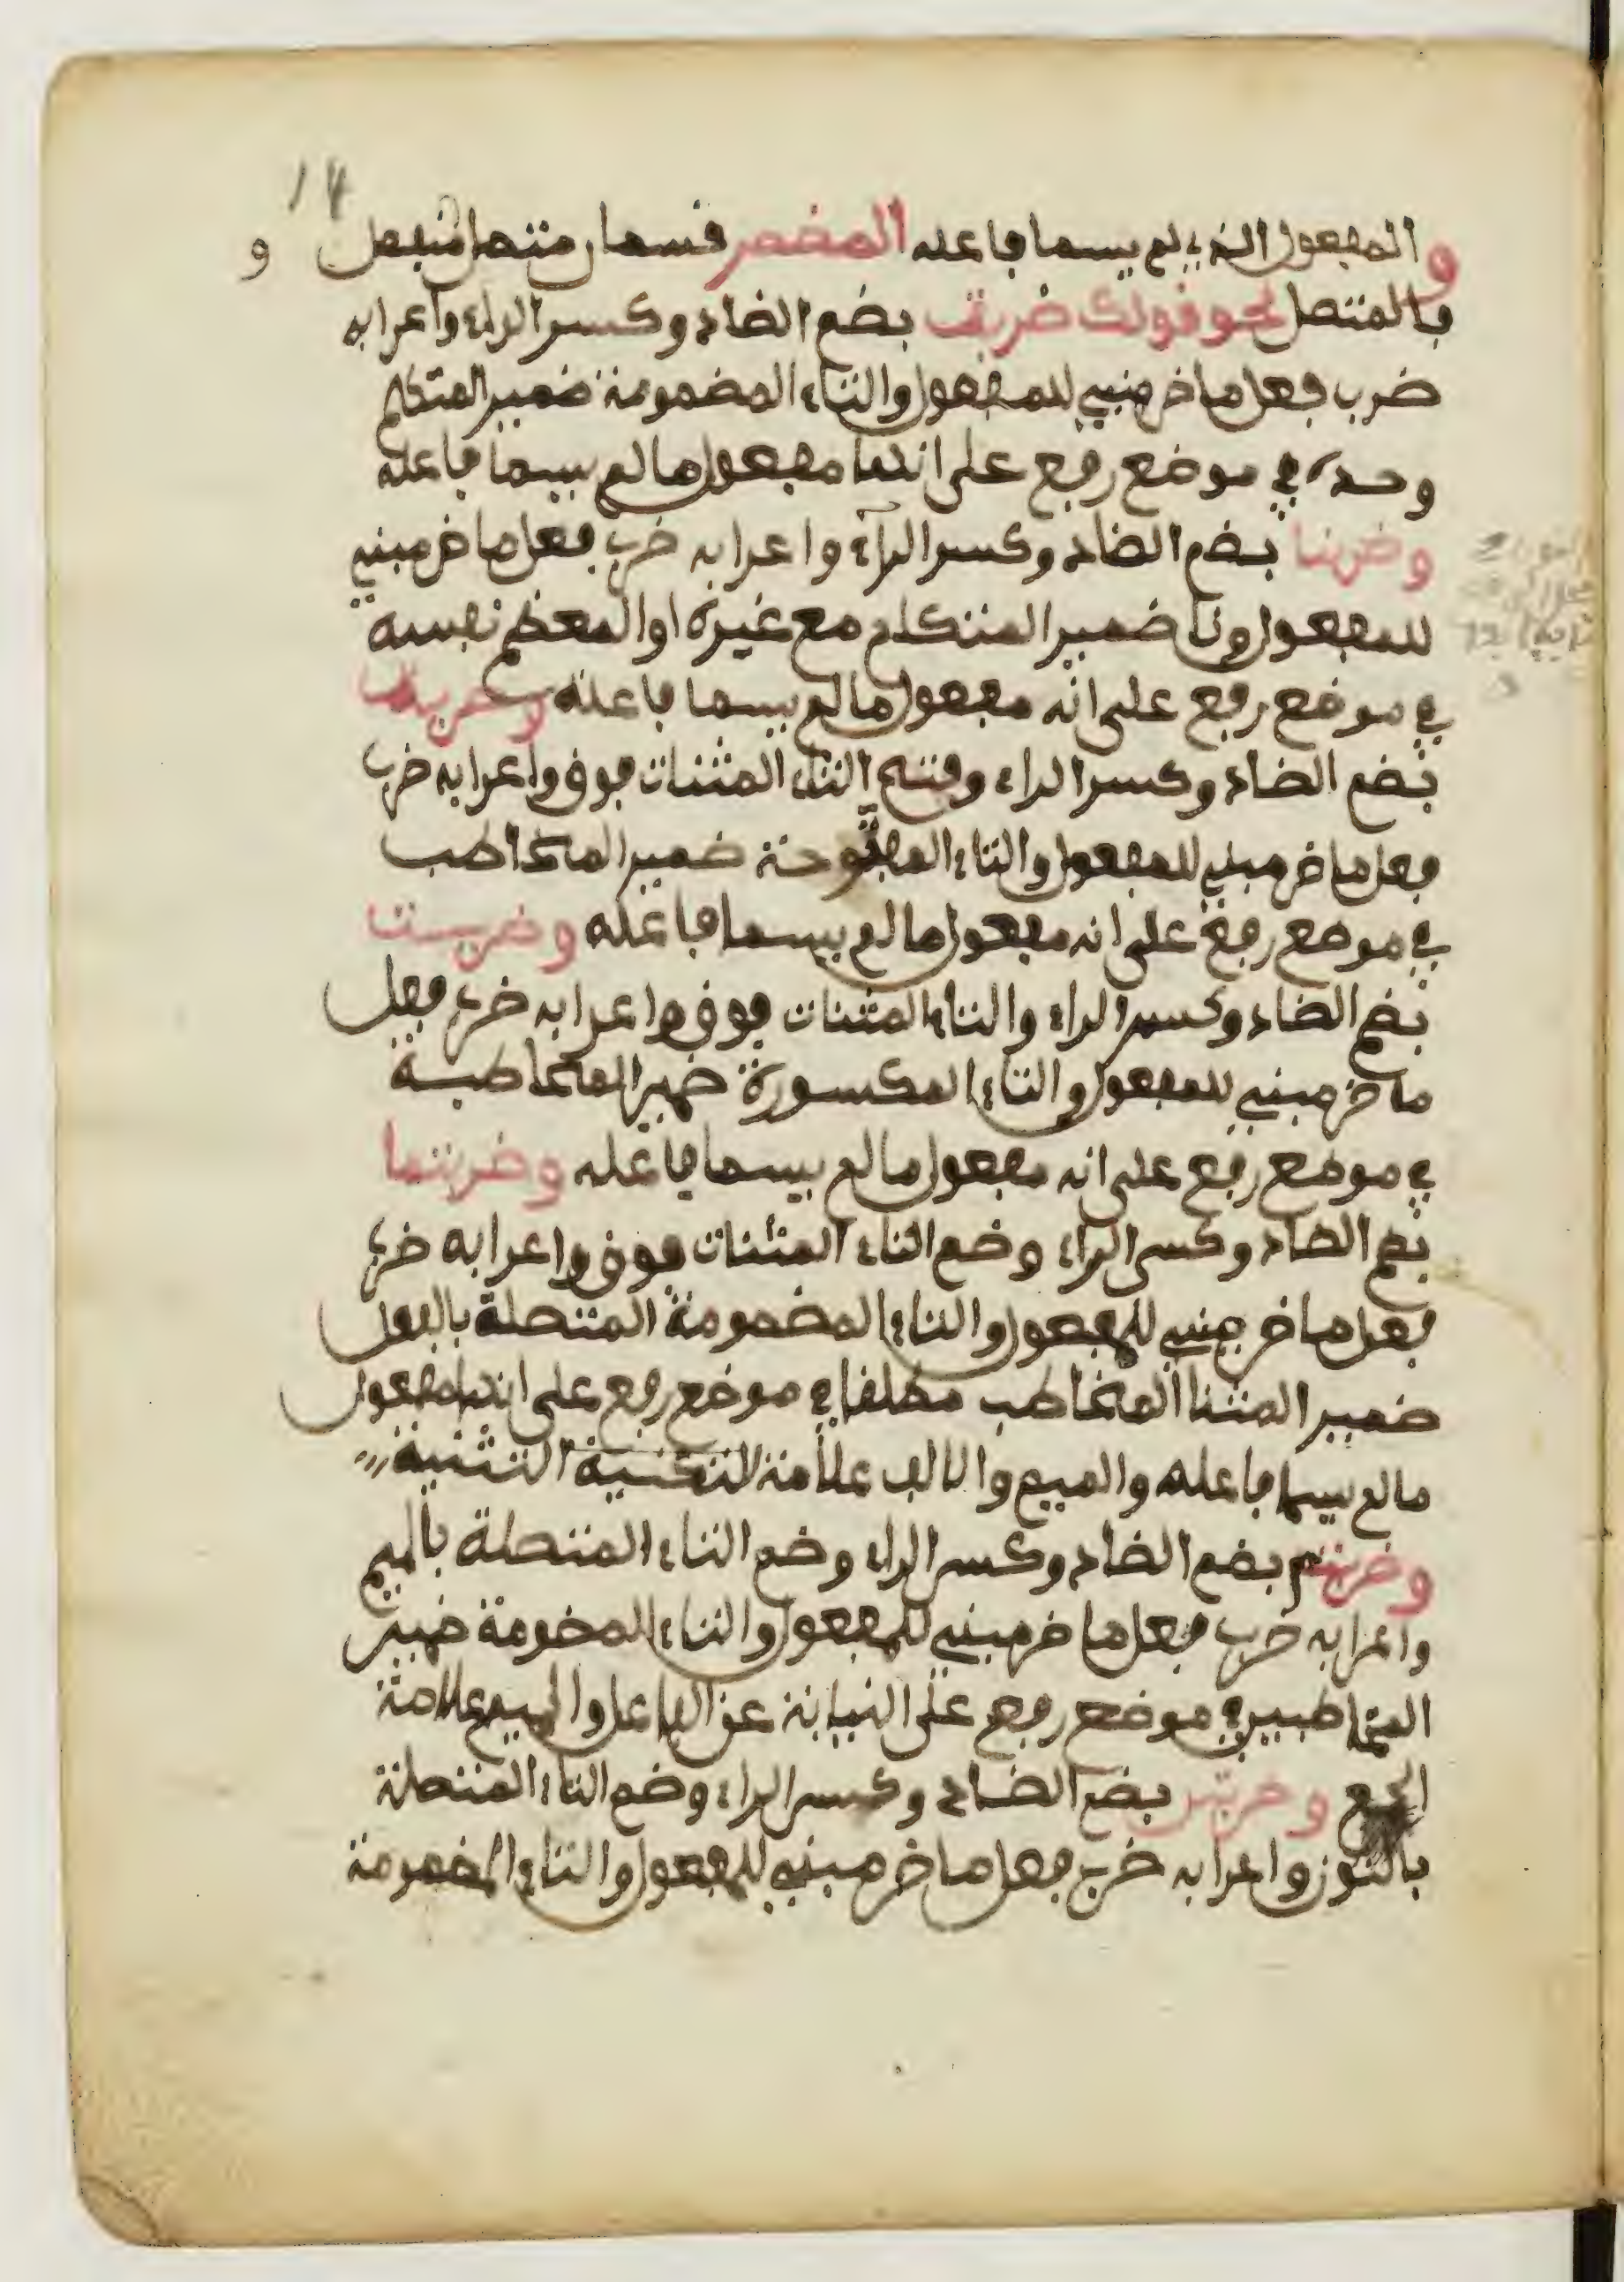 14
والمفعول الذي لم يسما فاعله المضمر فسمان متصل منفصل و
فالمتصل نحو قولك ضربت بضم الضاد وكسر الراء واعرابه
ضرب فعل ماض مبني للمفعول والتاء المضمومة ضمير المتكلم
وحده في موضع رفع على انها مفعول ما لم يسما فاعله
وضربنا بضم الضاد وكسر الراء واعرابه ضرب فعل ماض مبني
للمفعول ونا ضمير المتكلم مع غيره او المعظم نفسه
في موضع رفع على انه مفعول ما لم يسما فاعله وضربت
بضم الضاد وكسر الراء وفتح التاء المثنات فوق واعرابه ضرب
فعل ماض مبني للمفعول والتاء المفتوحة ضمير المخاطب
في موضع رفع على انه مفعول ما لم يسما فاعله وضربت
بضم الضاد وكسر الراء والتاء المثنات فوق واعرابه ضرب فعل
ماض مبني للمفعول والتاء المكسورة ضمير المخاطبة
في موضع رفع على انه مفعول ما لم يسما فاعله وضربتما
بضم الضاد وكسر الراء وضم التاء المثنات فوق واعرابه ضرب
فعل ماض مبني للمفعول والتاء المضمومة المتصلة بالفعل
ضمير المثنا المخاطب مطلقا في موضع رفع على انها مفعول
ما لم يسما فاعله والميم والالف علامة التثنية
وضربتم بضم الضاد وكسر الراء وضم التاء المتصلة بالميم
واعرابه ضرب فعل ماض مبني للمفعول والتاء المضومة ضمير
المخاطبين في موضع رفع على النيابة عن الفاعل والميم علامة
الجمع وضربتن بضم الضاد وكسر الراء وضم التاء المتصلة
بالنون واعرابه ضرب فعل ماض مبني للمفعول والتاء المضمومة